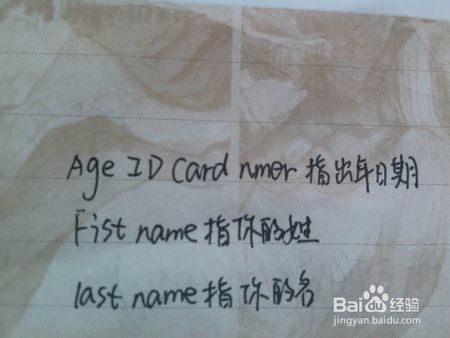 Age ID Card nmer 指出年日期
Fist name 指你的姓
last name 指你的名
Baidu 经验
jingyan.baidu.com